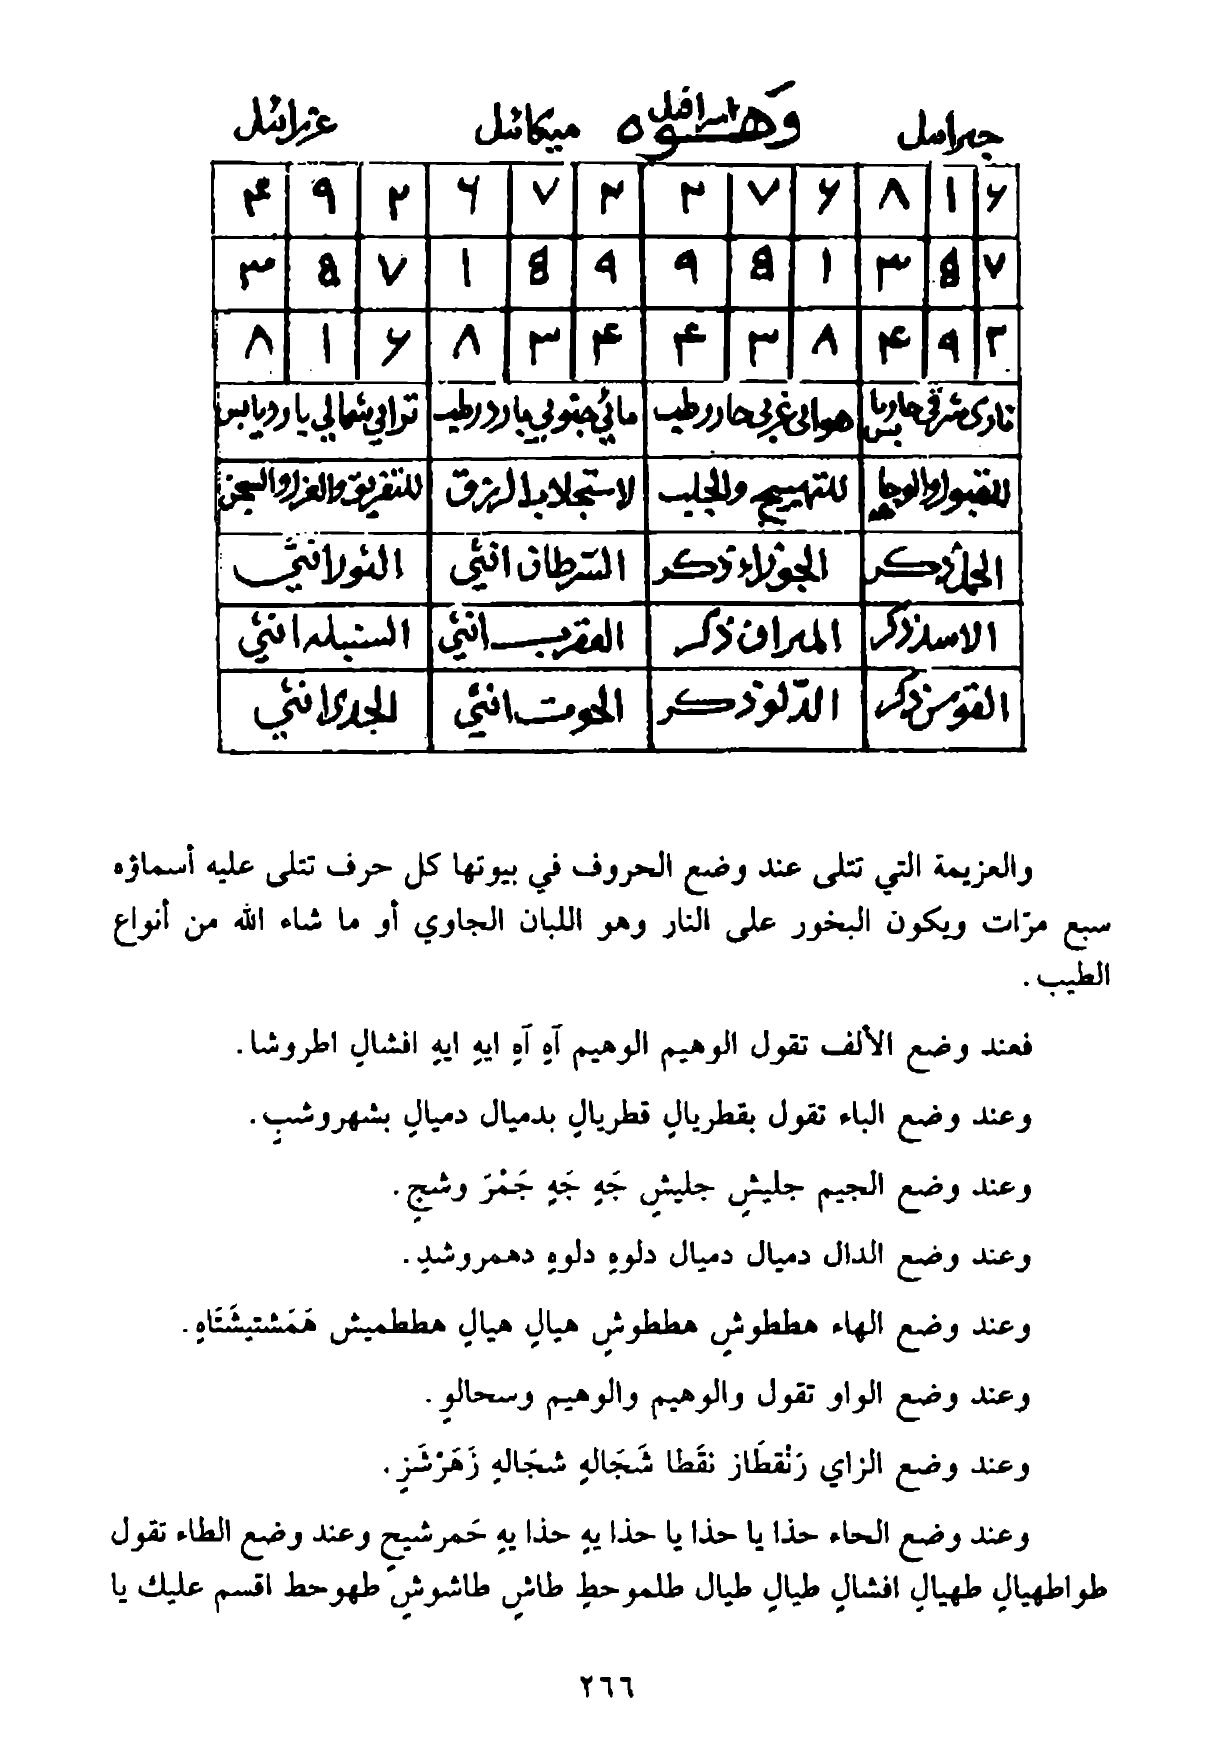 وهذه
جبرائيل اسرافيل ميكائيل عزرائيل
٦ ١ ٨ ٦ ٧ ٢ ٢ ٧ ٦ ٢ ٩ ٤
٧ ٥ ٣ ١ ٥ ٩ ٩ ٥ ١ ٧ ٥ ٣
٢ ٩ ٤ ٨ ٣ ٤ ٤ ٣ ٨ ٦ ١ ٨
نارى شرقي حار يابس هوائي غربي حار رطيب مائي جنوبي بارد رطيب ترابي شمالي بارد يابس
للقبول والوجاهه للتهييج والجلب لاستجلاب الرزق للتفريق والعزل والسجن
الحمل ذكر الجوزاء ذكر السرطان انثي الثور انثي
الاسد ذكر الميزان ذكر العقرب انثي السنبله انثي
القوس ذكر الدلو ذكر الحوت انثي الجدى انثي
والعزيمة التي تتلى عند وضع الحروف في بيوتها كل حرف تتلى عليه أسماؤه
سبع مرّات ويكون البخور على النار وهو اللبان الجاوي أو ما شاء الله من أنواع
الطيب.
فعند وضع الألف تقول الوهيم الوهيم آهِ آهِ ايهِ ايهِ افشالِ اطروشا.
وعند وضع الباء تقول بقطريالٍ قطريالٍ بدميال دميالٍ بشهروشبٍ.
وعند وضع الجيم جليشٍ جليشٍ جَهٍ جَهٍ جَمْرَ وشجٍ.
وعند وضع الدال دميال دميال دلوهٍ دلوهٍ دهمروشدٍ.
وعند وضع الهاء هططوشٍ هططوشٍ هيالٍ هيالٍ هططميش هَمَشتيشَتَاهٍ.
وعند وضع الواو تقول والوهيم والوهيم وسحالوٍ.
وعند وضع الزاي زَنْقطَاز نقَطا شَجَالهٍ شجَالهٍ زَهَرْشَزٍ.
وعند وضع الحاء حذا يا حذا يا حذا يهٍ حذا يهٍ حَمرشيحٍ وعند وضع الطاء تقول
طواطهيالٍ طهيالٍ افشالٍ طيالٍ طيال طلموحطٍ طاشٍ طاشوشٍ طهوحط اقسم عليك يا
٢٦٦